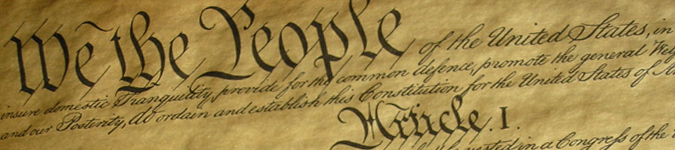 We the People of the United States, in
insure domestic Tranquility, provide for the common defence, promote the general
and our Posterity, do ordain and establish this Constitution for the United States of
Article. I.
in a Congress of the